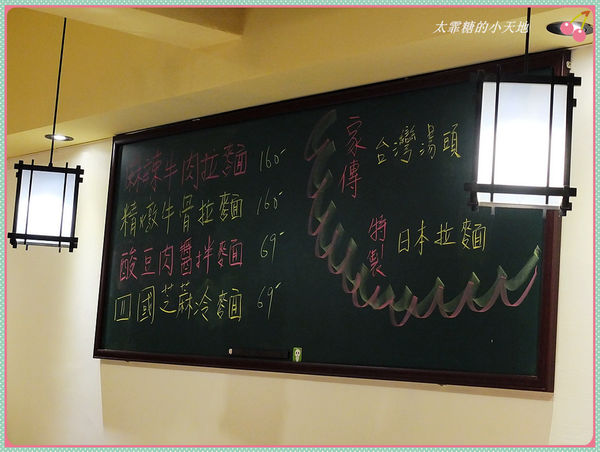 太霏糖的小天地
麻辣牛肉拉麵 160-
精燉牛骨拉麵 160-
酸豆肉醬拌麵 69-
四國芝蔴冷麵 69-
家傳
台灣湯頭
特製
日本拉麵